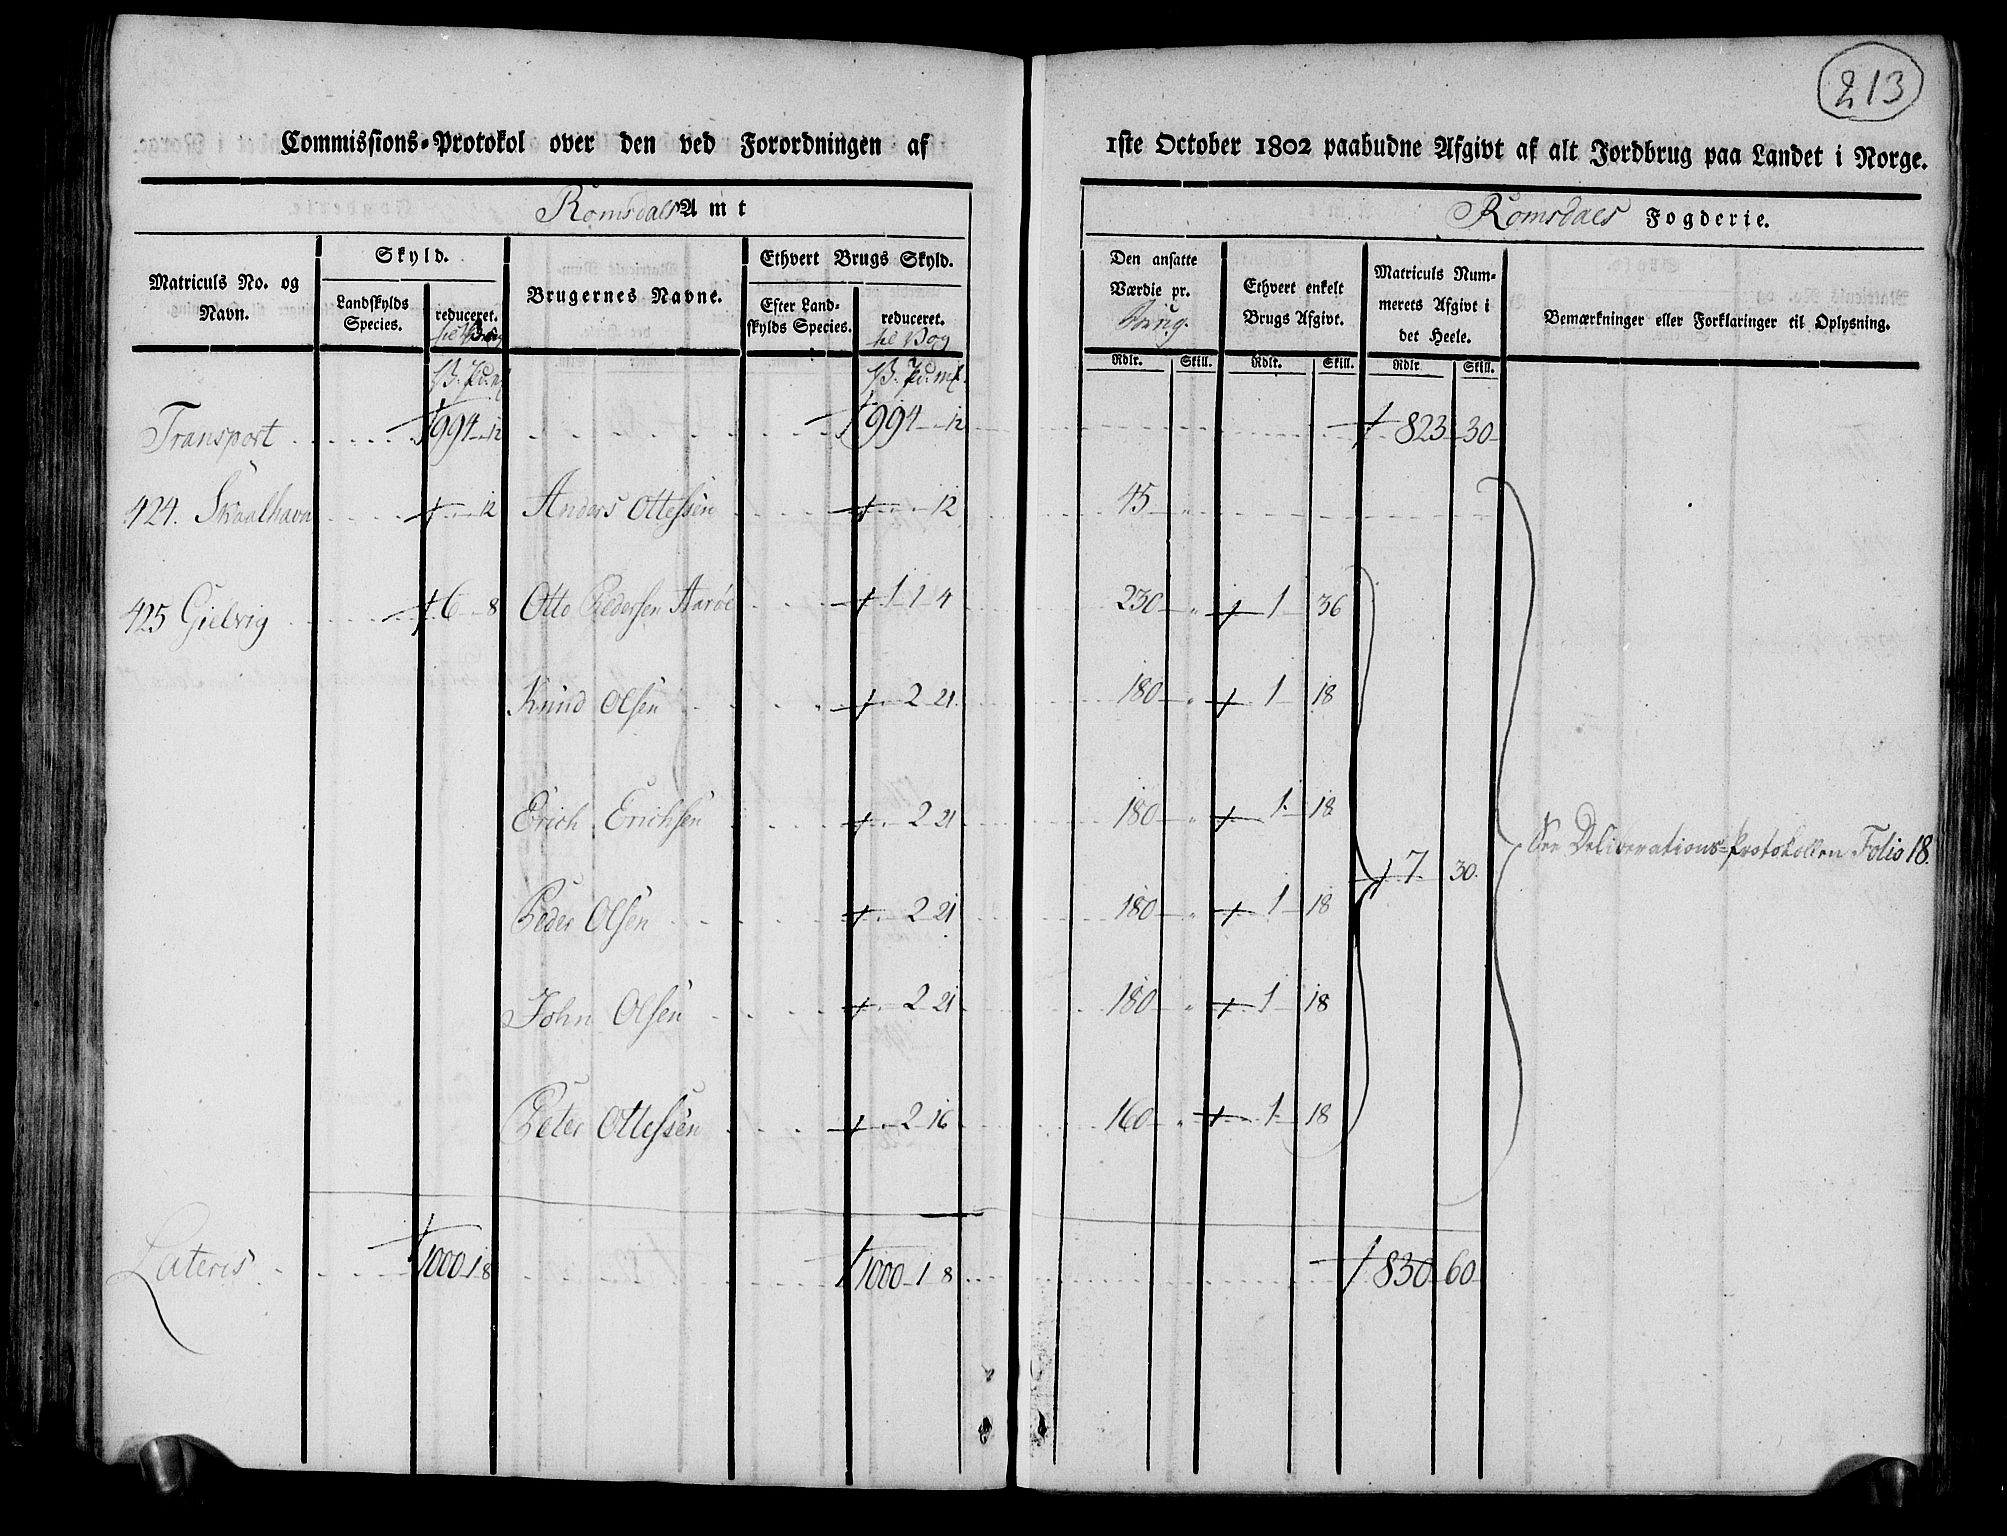 213
Commissions-Protokol over den ved Forordningen af 1ste October 1802 paabudne Afgivt af alt Jordbrug paa Landet i Norge.
Romsdals Amt
Romsdals Fogderie.
Matriculs No. og Navn.
Skyld.
Landskylds Species.
reduceret. til Vog
Brugernes Navne.
Ethvert Brugs Skyld.
Efter Landskylds Species.
reduceret. til Vog
Den ansatte Værdie pr. Brug.
Ethvert enkelt Brugs Afgivt.
Matriculs Nummerets Afgivt i det Heele.
Bemærkninger eller Forklaringer til Oplysning.
Rdlr. Skill. Rdlr. Skill. Rdlr. Skill.
Transport 994 - 12 994 - 12 823 - 30
424. Skaalhavn - 12 Anders Ottessen - 12 45 - "
425 Gielvig 6 - 8 Otto Pedersen Aarøe 1 - 1 - 4 230 - " 1 - 36
Knud Olsen 2 - 21 180 - " 1 - 18
Erich Erichsen 2 - 21 180 - " 1 - 18
See Deliberations-Protokollen Folio 18.
7 - 30.
Peder Olsen 2 - 21 180 - " 1 - 18
John Olsen 2 - 21 180 - " 1 - 18
Peter Ottessen 2 - 16 160 - " 1 - 18
Lateris 1000 - 1 - 8 1000 - 1 - 8 830 - 60